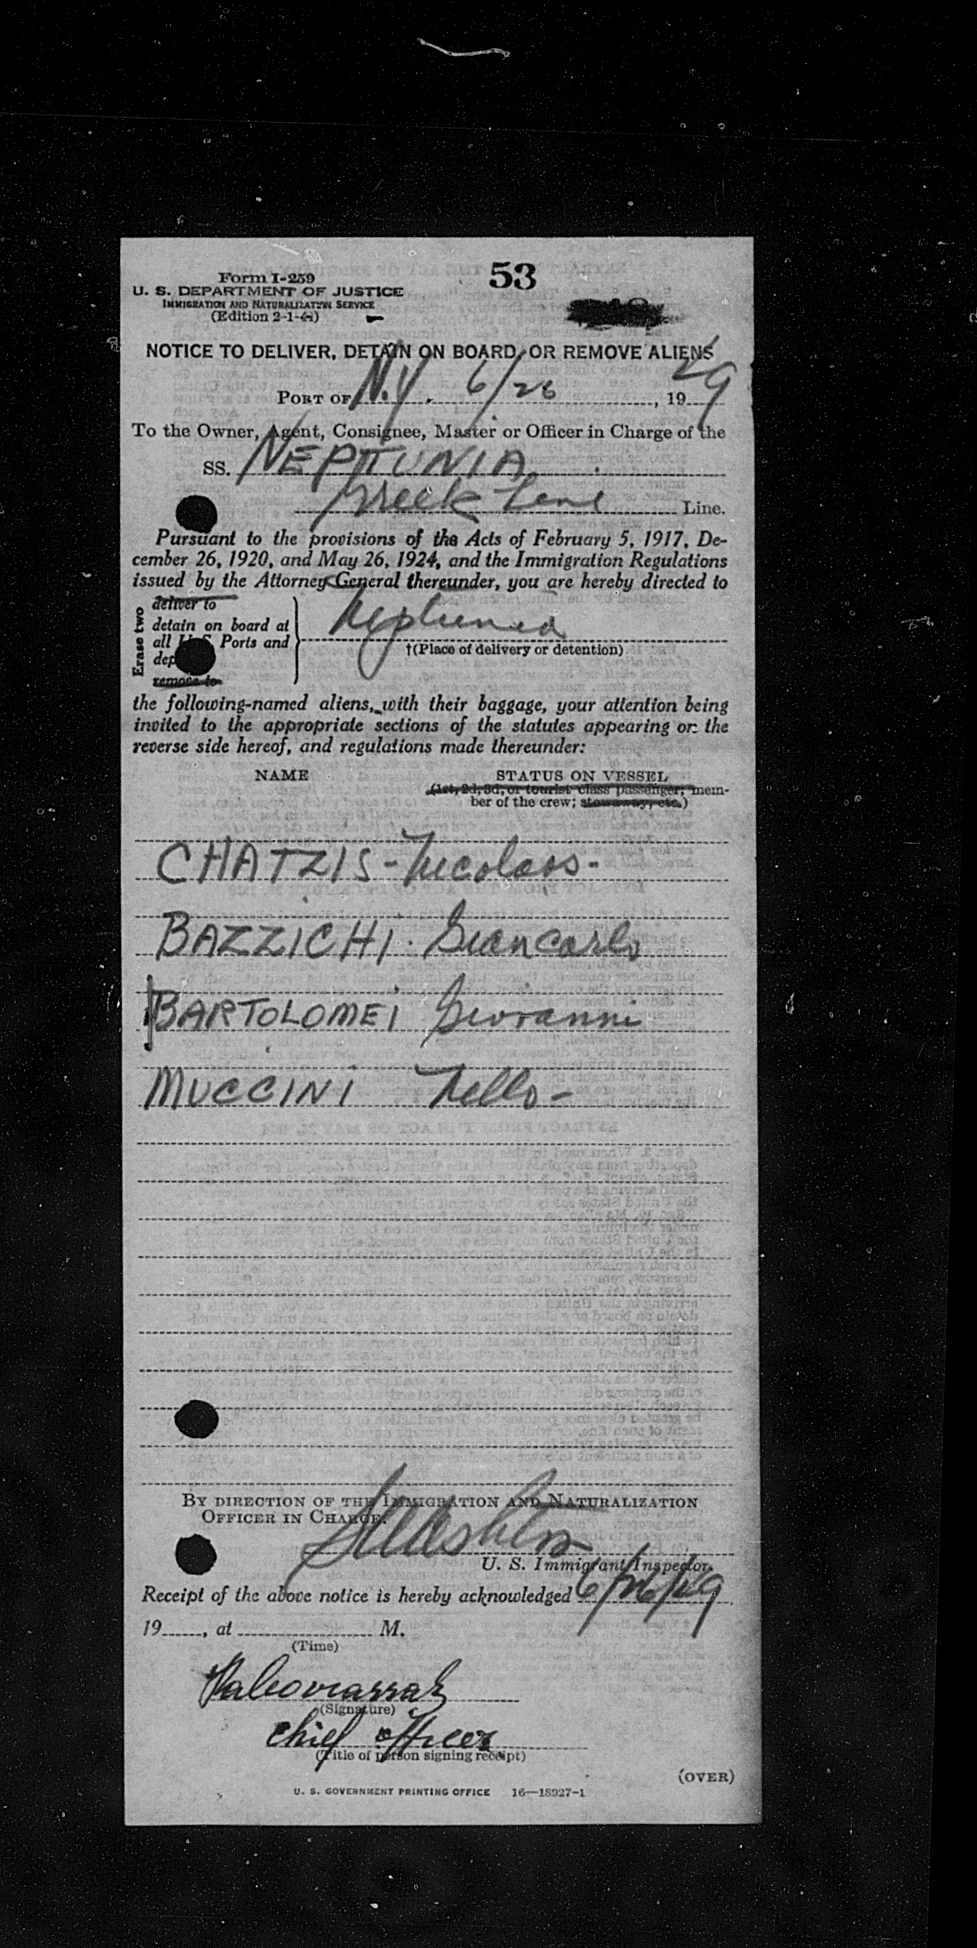 Form I-259
53
U. S. DEPARTMENT OF JUSTICE
IMMIGRATION AND NATURALIZATION SERVICE
(Edition 2-1-41)
NOTICE TO DELIVER, DETAIN ON BOARD, OR REMOVE ALIENS
PORT OF N.Y. 6/26, 1949
To the Owner, Agent, Consignee, Master or Officer in Charge of the
SS. NEPTUNIA
Greek Line Line.
Pursuant to the provisions of the Acts of February 5, 1917, De-
cember 26, 1920, and May 26, 1924, and the Immigration Regulations
issued by the Attorney General thereunder, you are hereby directed to
Erase two
deliver to
detain on board at
all U. S. Ports and
remove to
Neptunia
†(Place of delivery or detention)
the following-named aliens, with their baggage, your attention being
invited to the appropriate sections of the statutes appearing on the
reverse side hereof, and regulations made thereunder:
NAME STATUS ON VESSEL
(1st, 2d, 3d, or tourist class passenger; mem-
ber of the crew; stowaway, etc.)
CHATZIS - Nicolaos -
BAZZICHI · Giancarlo
BARTOLOMEI Giovanni
MUCCINI Nello -
BY DIRECTION OF THE IMMIGRATION AND NATURALIZATION
OFFICER IN CHARGE:
U. S. Immigrant Inspector.
Receipt of the above notice is hereby acknowledged 6/26/49
19, at M.
(Time)
(Signature)
chief officer
(Title of person signing receipt)
(OVER)
U. S. GOVERNMENT PRINTING OFFICE 16—18927-1